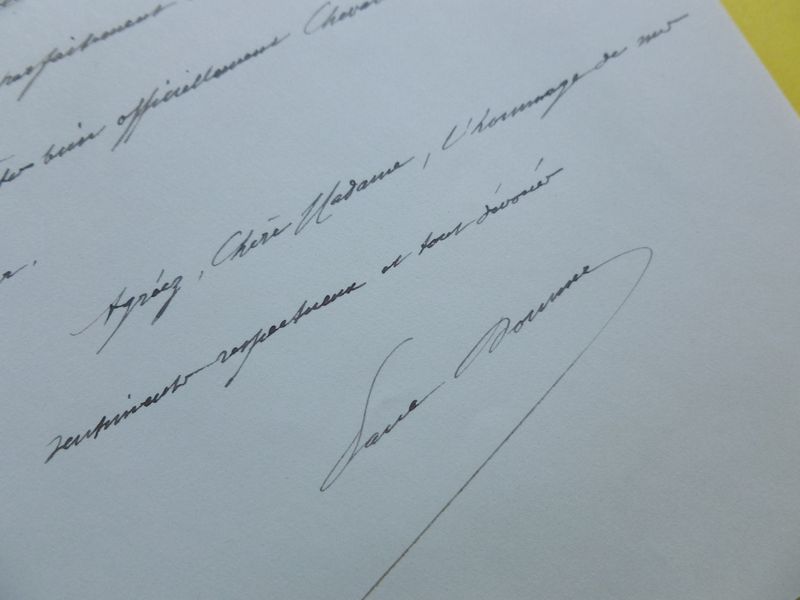 parfaitement
bien officiellement Cheva
Agréez, Chère Madame, l'hommage de mes
sentiments respectueux et tout dévoués
Paul Doumer